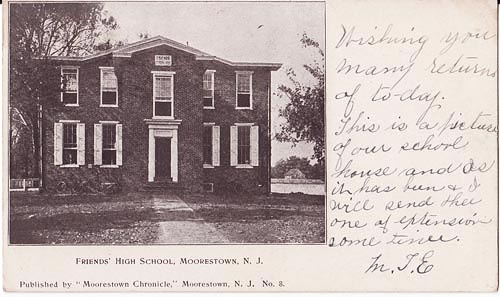 FRIENDS
Wishing you
many returns
of to-day.
This is a picture
of our school
house and as
it has been & I
will send thee
one of extension
some time.
M. J. E
FRIENDS' HIGH SCHOOL, MOORESTOWN, N. J.
Published by "Moorestown Chronicle," Moorestown, N. J. No. 8.